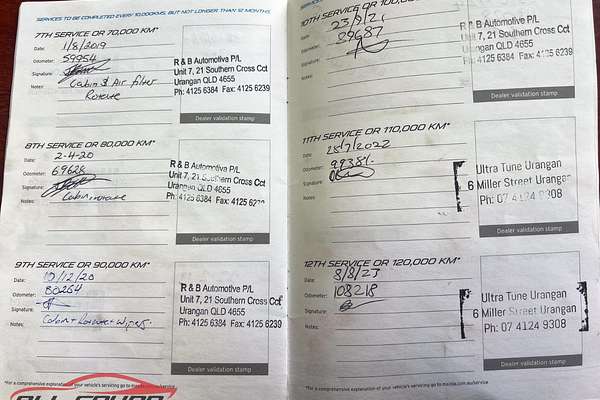 SERVICES TO BE COMPLETED EVERY 10,000KMS, BUT NOT LONGER THAN 12 MONTHS
7TH SERVICE OR 70,000 KM*
Date: 1/8/2019
Odometer: 59954
Signature:
Notes: Cabin & Air filter
Rotate
R & B Automotive P/L
Unit 7, 21 Southern Cross Cct
Urangan QLD 4655
Ph: 4125 6384 Fax: 4125 6239
Dealer validation stamp
8TH SERVICE OR 80,000 KM*
Date: 2-4-20
Odometer: 69628
Signature:
Notes:
R & B Automotive P/L
Unit 7, 21 Southern Cross Cct
Urangan QLD 4655
Ph: 4125 6384 Fax: 4125
Dealer validation stamp
9TH SERVICE OR 90,000 KM*
Date: 10/12/20
Odometer: 80264
Signature:
Notes: Wipers
R & B Automotive P/L
Unit 7, 21 Southern Cross Cct
Urangan QLD 4655
Ph: 4125 6384 Fax: 4125 6239
Dealer validation stamp
*For a comprehensive explanation of your vehicle's servicing go to mazda.com.au/service
10TH SERVICE OR 100,000
Date: 23/9/21
Odometer: 89687
Signature:
Notes:
R & B Automotive P/L
Unit 7, 21 Southern Cross Cct
Urangan QLD 4655
Ph: 4125 6384 Fax: 4125
Dealer validation stamp
11TH SERVICE OR 110,000 KM*
Date: 28/7/2022
Odometer: 99381
Signature:
Notes:
Ultra Tune Urangan
6 Miller Street Urangan
Ph: 07 4124 9308
Dealer validation stamp
12TH SERVICE OR 120,000 KM*
Date: 8/8/23
Odometer: 108218
Signature:
Notes:
Ultra Tune Urangan
6 Miller Street Urangan
Ph: 07 4124 9308
Dealer validation stamp
*For a comprehensive explanation of your vehicle's servicing go to mazda.com.au/service